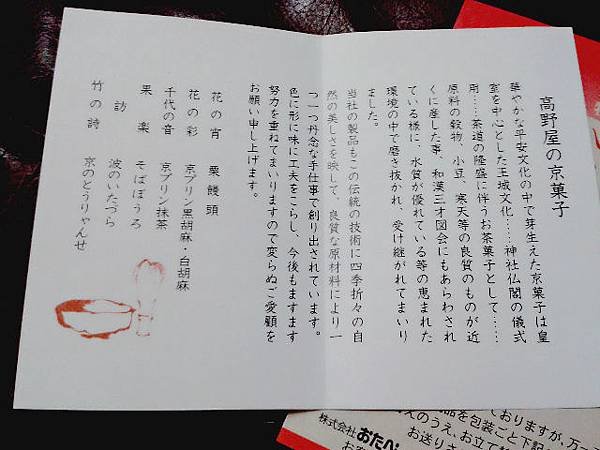 高野屋の京菓子
華やかな平安文化の中で芽生えた京菓子は皇
室を中心とした王城文化……神社仏閣の儀式
用……茶道の隆盛に伴うお茶菓子として……
原料の穀物、小豆、寒天等の良質のものが近
くに産した事、和漢三才図会にもあらわされ
ている様に、水質が優れている等の恵まれた
環境の中で磨き抜かれ、受け継がれてまいり
ました。
当社の製品もこの伝統の技術に四季折々の自
然の美しさを映して、良質な原材料により一
つ一つ丹念な手仕事で創り出されています。
色に形に味に工夫をこらし、今後もますます
努力を重ねてまいりますので変らぬご愛顧を
お願い申し上げます。
花の宵 栗饅頭
花の彩 京プリン黒胡麻・白胡麻
千代の音 京プリン抹茶
果楽 そばぼうろ
訪 波のいたづら
竹の詩 京のとうりゃんせ
ておりますが、万一
品を包装ごと下記
えのうえ、お立て
お送り
株式会社おたべ